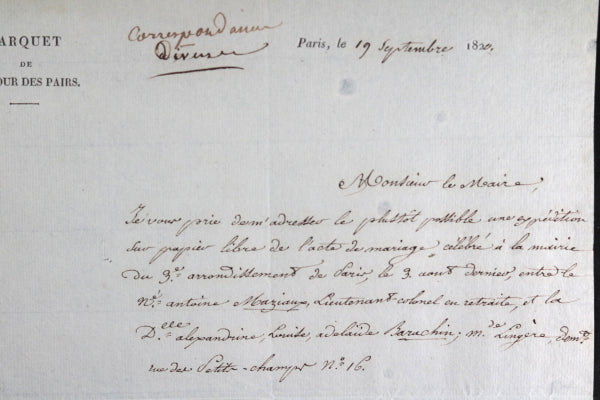 ARQUET
DE
OUR DES PAIRS.
Correspondance
Diverse
Paris, le 19 Septembre 1820.
Monsieur le Maire,
Je vous prie de m'adresser le plustôt possible une expédition
sur papier libre de l'acte de mariage célébré à la mairie
du 3e. arrondissement de Paris, le 3 aout dernier, entre le
antoine Maziaux, Lieutenant colonel en retraite, et la
Delle alexandrine, Louise, adelaïde Barachin; mde Lingère, demt.
rue des Petits-champs No. 16.